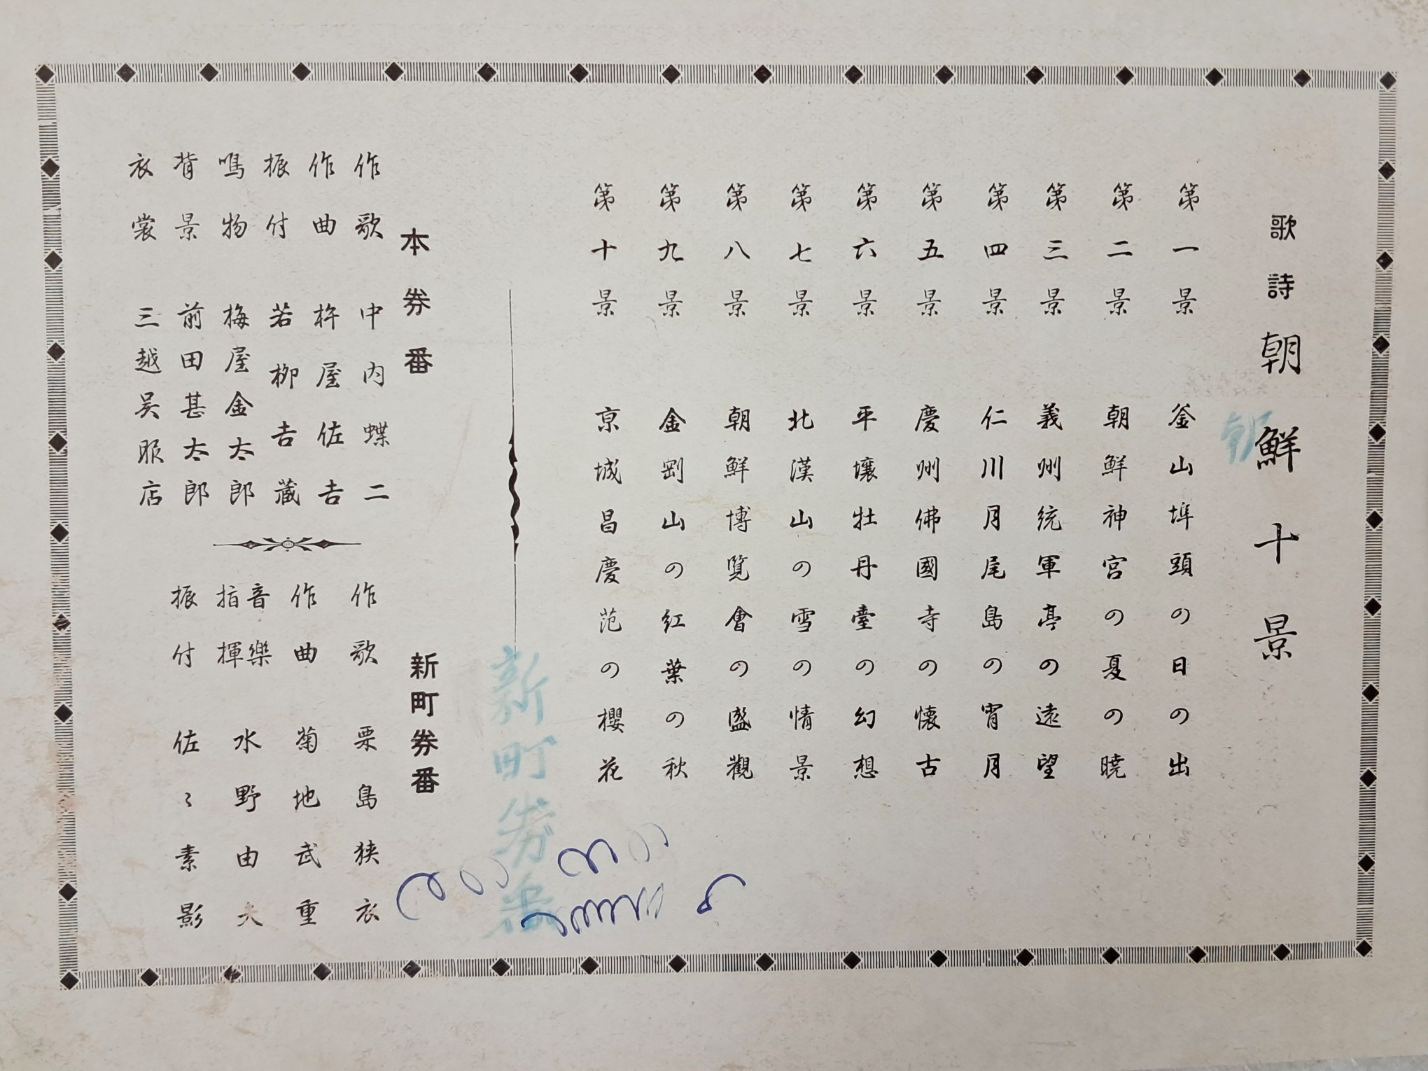 歌詩 朝鮮十景
朝
第一景 釜山埠頭の日の出
第二景 朝鮮神宮の夏の暁
第三景 義州統軍亭の遠望
第四景 仁川月尾島の宵月
第五景 慶州佛國寺の懐古
第六景 平壤牡丹臺の幻想
第七景 北漢山の雪の情景
第八景 朝鮮博覧會の盛觀
第九景 金剛山の紅葉の秋
第十景 京城昌慶苑の櫻花
新町券番
本券番
作歌 中内蝶二
作曲 杵屋佐吉
振付 若柳吉蔵
鳴物 梅屋金太郎
背景 前田甚太郎
衣裳 三越吴服店
新町券番
作歌 栗島狭衣
作曲 菊地武重
音樂指揮 水野由夫
振付 佐〻素影